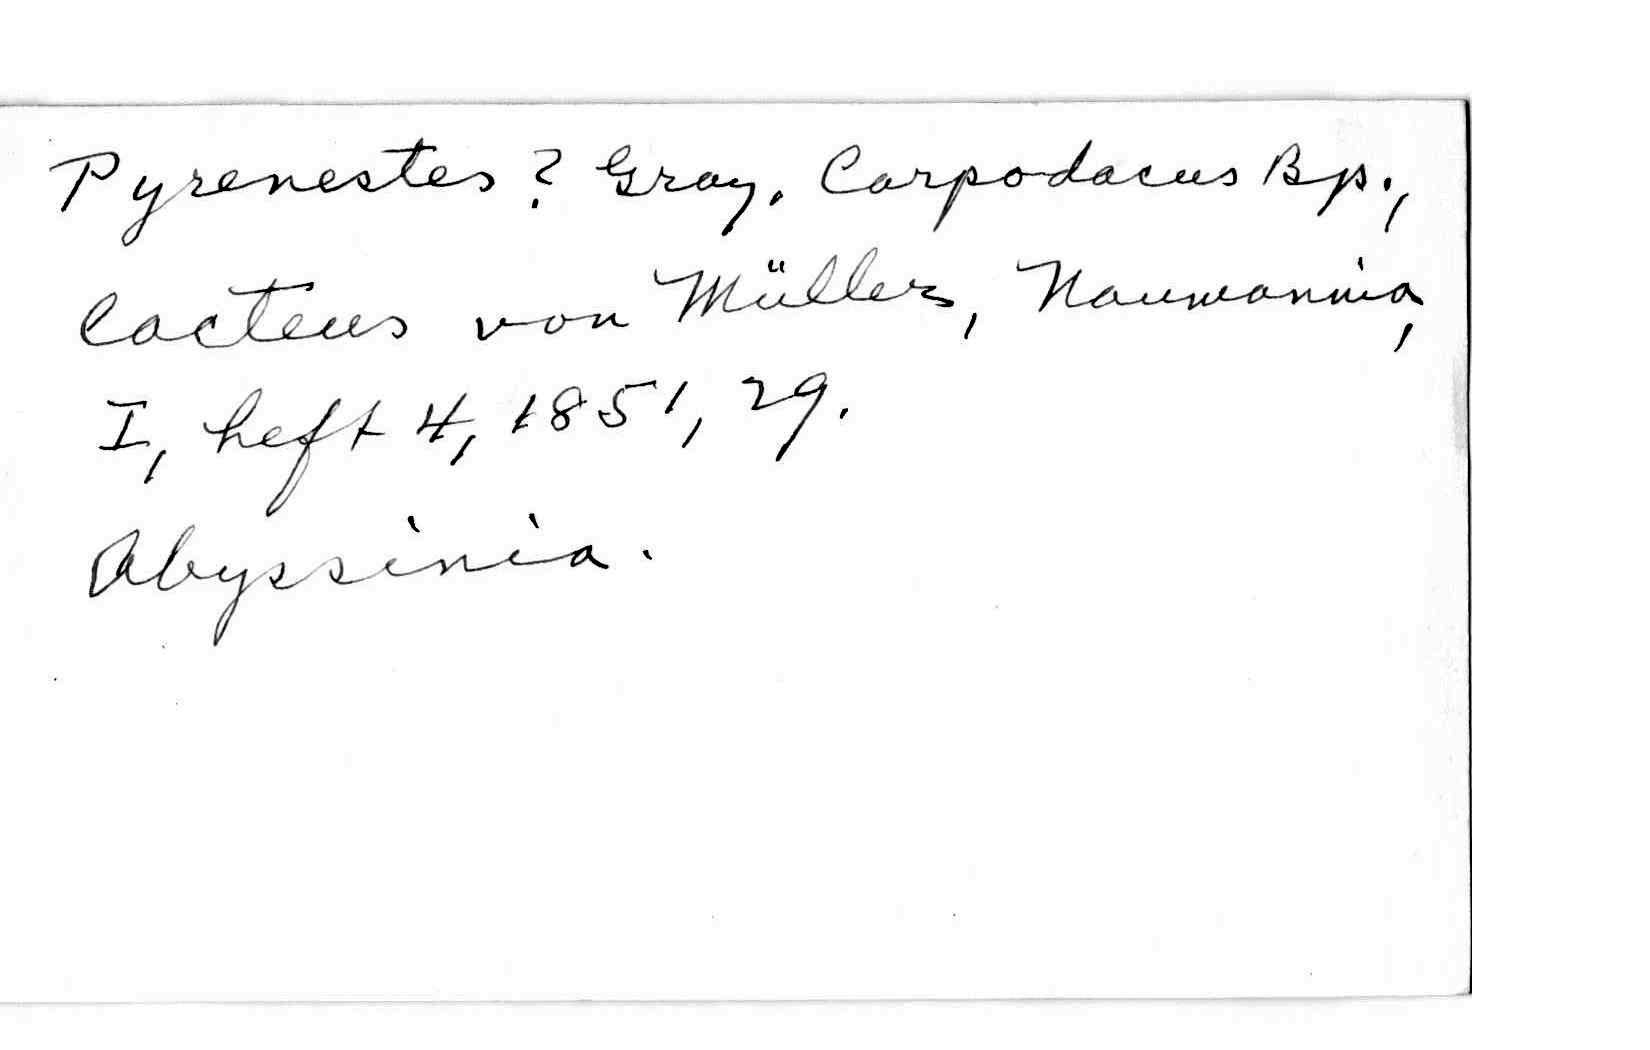 Pyrenestes? Gray. Carpodacus Bp.,
lacteus von Müller, Naumannia,
I, heft 4, 1851, 29.
Abyssinia.